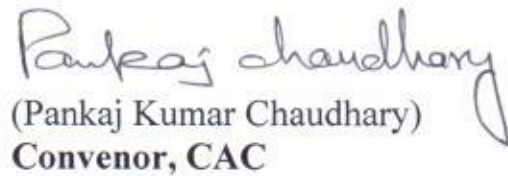 Pankaj chaudhary
(Pankaj Kumar Chaudhary)
Convenor, CAC